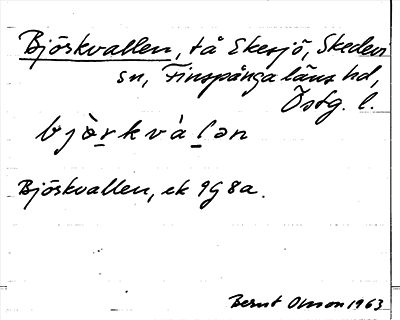 Björkvallen, tå Ekesjö, Skedevi
sn, Finspånga läns hd,
Östg. l.
bjò̱rkvà̱lən
Björkvallen, ek 9G 8a.
Bernt Olsson 1963